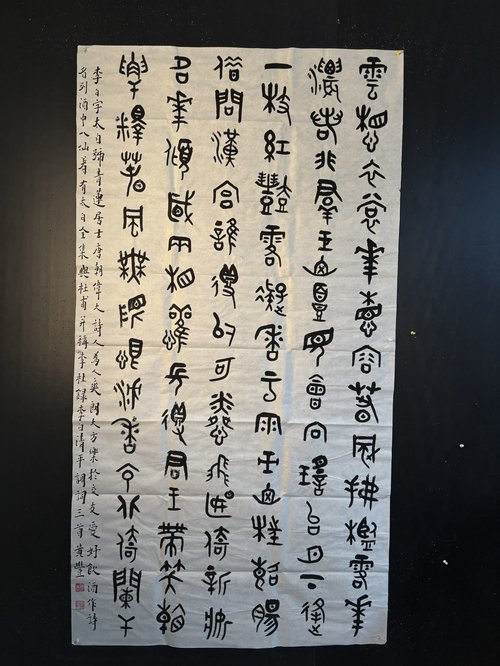 雲想衣裳華想容春風拂檻露華
濃若非群玉山頭見會向瑤台月下逢
一枝紅豔露凝香云雨巫山枉斷腸
借問漢宮誰得似可憐飛燕倚新妝
名華傾國兩相歡長得君王帶笑看
解釋春風無限恨沉香亭北倚闌干
李白字太白號青蓮居士唐朝偉大詩人為人爽朗大方樂於交友愛好飲酒作詩
名列酒中八仙著有太白全集與杜甫并稱李杜錄李白清平調詞三首